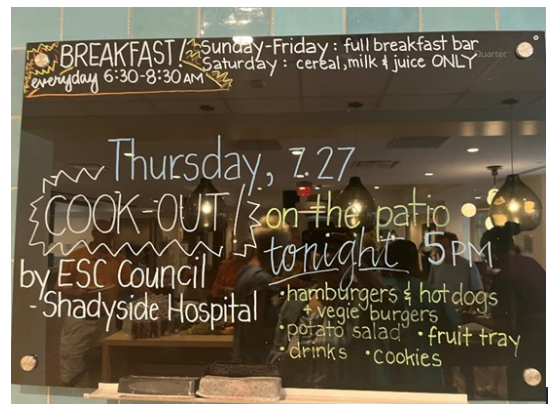 BREAKFAST! Sunday-Friday : full breakfast bar
everyday 6:30-8:30AM Saturday : cereal, milk & juice ONLY
Quartet
Thursday, 7.27
COOK-OUT! on the patio
tonight 5PM
by ESC Council
- Shadyside Hospital
• hamburgers & hotdogs
+ vegie burgers
• potato salad • fruit tray
• drinks • cookies